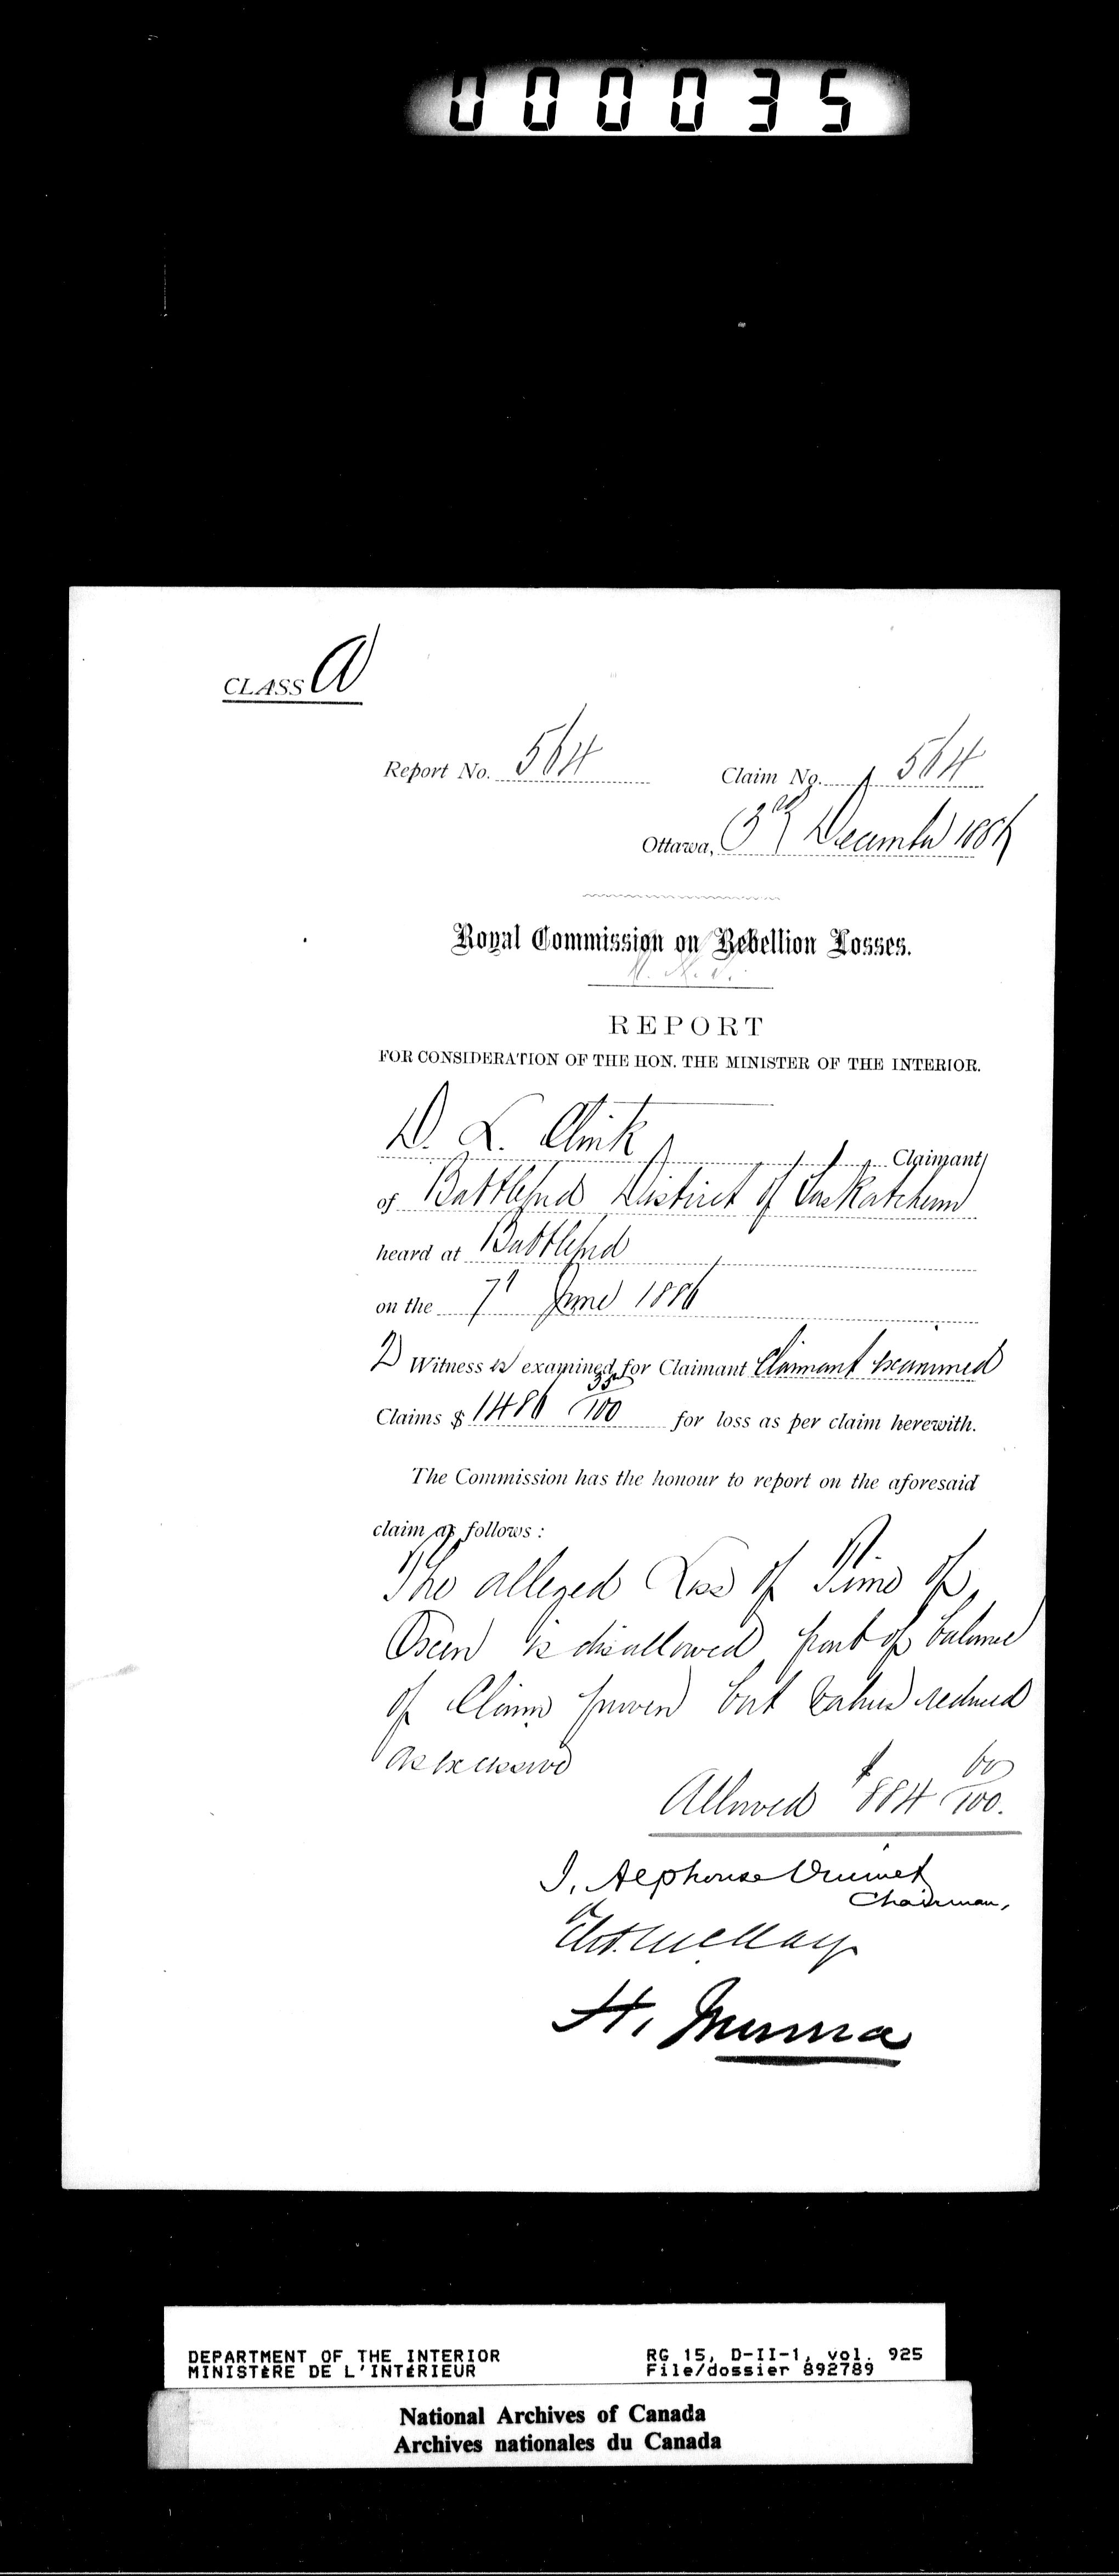 000035
CLASS A
Report No. 564 Claim No. 564
Ottawa, 3rd December 1886
Royal Commission on Rebellion Losses.
REPORT
FOR CONSIDERATION OF THE HON. THE MINISTER OF THE INTERIOR.
D. L. Clink Claimant
of Battleford District of Saskatchewan
heard at Battleford
on the 7th June 1886
2 Witness es examined for Claimant Claimant examined
Claims $ 1486 35/100 for loss as per claim herewith.
The Commission has the honour to report on the aforesaid
claim as follows :
The alleged Loss of Time of
Oxen is disallowed part of balance
of Claim proven but values reduced
as excessive
Allowed $884 60/100.
J. Alphonse Ouimet
Chairman,
H. Muma
DEPARTMENT OF THE INTERIOR RG 15, D-II-1, vol. 925
MINISTÈRE DE L'INTÉRIEUR File/dossier 892789
National Archives of Canada
Archives nationales du Canada